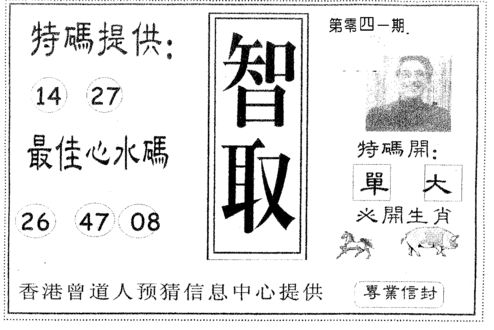 特碼提供：
14 27
最佳心水碼
26 47 08
智取
第零四一期.
特碼開：
單 大
必開生肖
香港曾道人预猜信息中心提供
専業信封